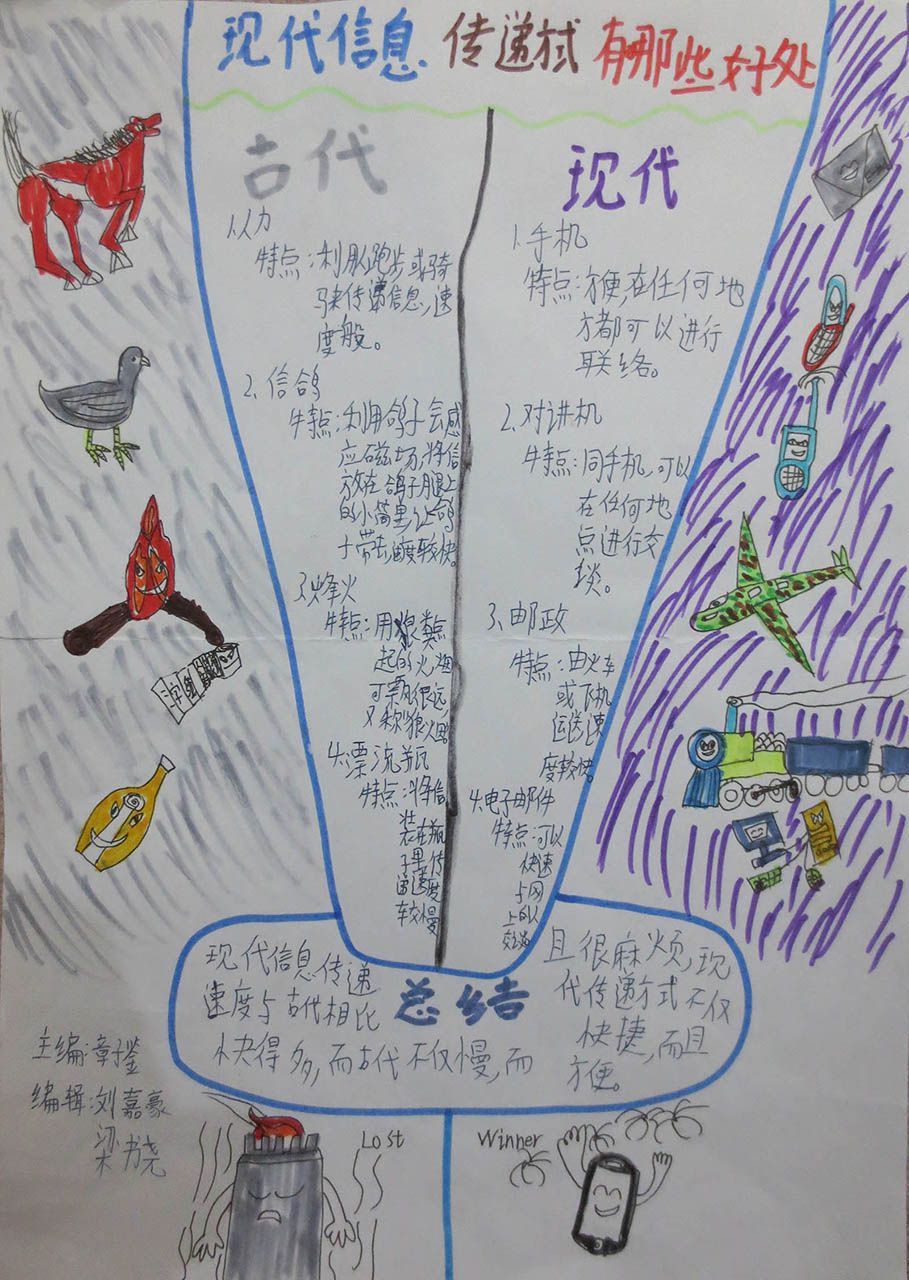 现代信息传递式有哪些好处
古代
1.人力
特点:利用人跑步或骑
马来传递信息,速
度般。
2、信鸽
特点:利用鸽子会感
应磁场,将信
放在鸽子腿上
的小筒里,让鸽
子带去,速度较快。
3.烽火
特点:用狼粪点
起的火,烟
可飘很远,
又称狼烟。
4.漂流瓶
特点:将信
装在瓶
子里传
递速度
较慢
现代
1.手机
特点:方便,在任何地
方都可以进行
联络。
2.对讲机
特点:同手机,可以
在任何地
点进行交
谈。
3、邮政
特点:由火车
或飞机
运送速
度较快。
4.电子邮件
特点:可以
快速
与网
上的人
交谈
总结
现代信息传递
速度与古代相比
快得多,而古代不仅慢,而
且很麻烦,现
代传递方式不仅
快捷,而且
方便。
主编:章子鉴
编辑:刘嘉豪
梁书尧
Lost
Winner